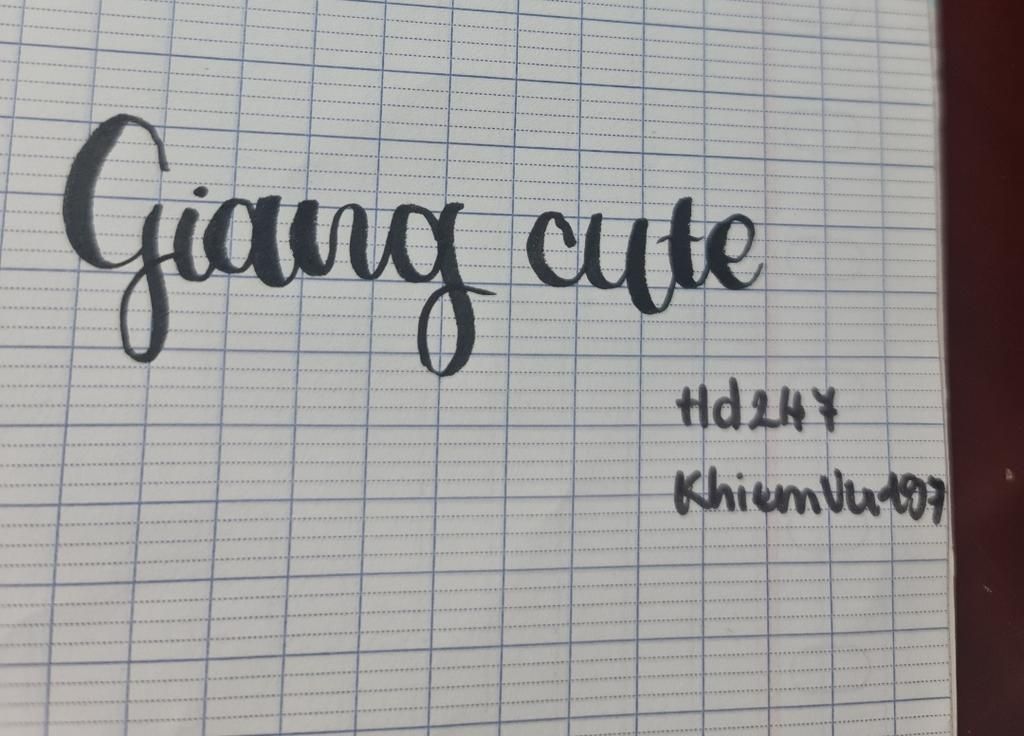 Giang cute
Hd247
KhiemVu197